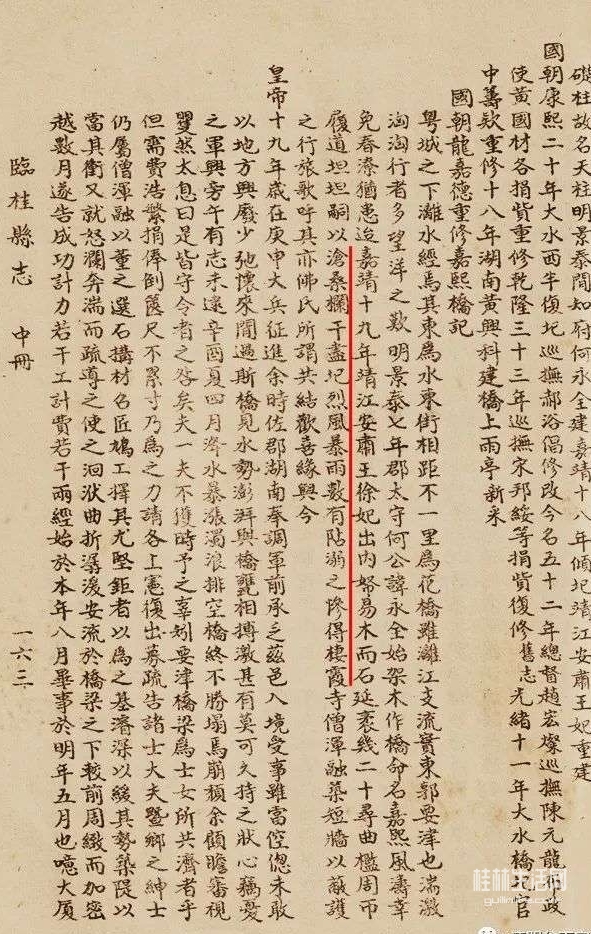 礎柱故名天柱明景泰間知府何永全建嘉靖十八年傾圮靖江安肅王妃重建
國朝康熙二十年大水西半復圮巡撫郝浴倡修改今名五十二年總督趙宏燦巡撫陳元龍布政
使黃國材各捐貲重修乾隆三十三年巡撫宋邦綏等捐貲復修舊志光緒十一年大水橋
中籌欵重修十八年湖南黃興科建橋上雨亭新采
國朝龍嘉德重修嘉熙橋記
粵城之下灕水經焉其東爲水東街相距不一里爲花橋雖灕江支流實東郭要津也湍激
淘淘行者多望洋之歎明景泰七年郡太守何公諱永全始架木作橋命名嘉熙風濤幸
免春漆猶患迨嘉靖十九年靖江安肅王徐妃出內帑易木而石延袤幾二十尋曲檻周帀
履道坦坦嗣以滄桑欄干盡圮烈風暴雨數有阽溺之慘得棲霞寺僧渾融築短牆以蔽護
之行旅歌呼其亦佛氏所謂共結歡喜緣與今
皇帝十九年歲在庚申大兵征進余時佐郡湖南奉調軍前承乏茲邑入境受事雖當倥偬未敢
以地方興廢少弛懷來聞過斯橋見水勢澎湃與橋甕相搏激甚有莫可久持之狀心竊憂
之軍興旁午有志未遑辛酉夏四月洚水暴漲濁浪排空橋終不勝塌馬崩頹余顧瞻審視
瞿然太息曰是皆守令者之咎矣夫一夫不獲時予之辜矧要津橋梁爲士女所共濟者乎
但需費浩繁捐俸倒篋尺不累寸乃爲之力請各上憲復出募疏告諸士大夫暨鄉之紳士
仍屬僧渾融以董之選石搆材名匠鳩工擇其尤堅鉅者以爲之基濬深以緩其勢築隄以
當其衝又就怒瀾奔湍而疏導之使之洄洑曲折潺湲安流於橋梁之下較前周緻而加密
越數月遂告成功計力若干工計費若干兩經始於本年八月畢事於明年五月也噫大厦
臨桂縣志 中冊 一六三
桂林生活网
guilinlife.com